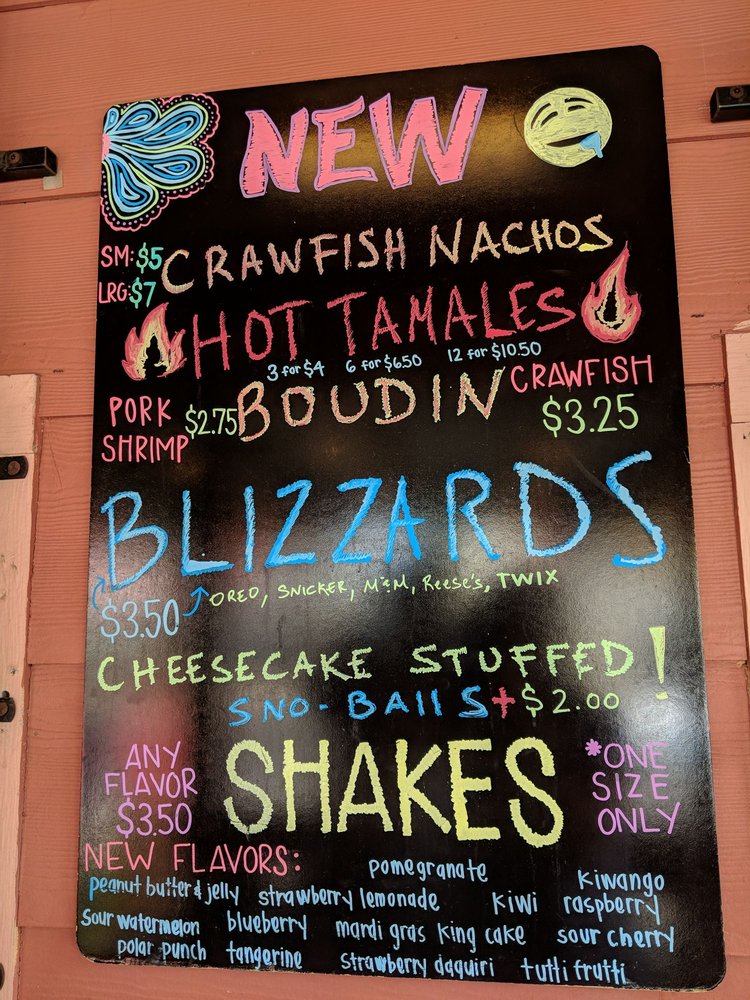 NEW
SM: $5 CRAWFISH NACHOS
LRG: $7
HOT TAMALES
3 for $4 6 for $6.50 12 for $10.50
PORK SHRIMP $2.75 BOUDIN CRAWFISH $3.25
BLIZZARDS
$3.50 OREO, SNICKER, M&M, Reese's, TWIX
CHEESECAKE STUFFED!
SNO-BAllS + $2.00
ANY FLAVOR $3.50 SHAKES *ONE SIZE ONLY
NEW FLAVORS: pomegranate kiwango
peanut butter & jelly strawberry lemonade kiwi raspberry
sour watermelon blueberry mardi gras king cake sour cherry
polar punch tangerine strawberry daquiri tutti frutti